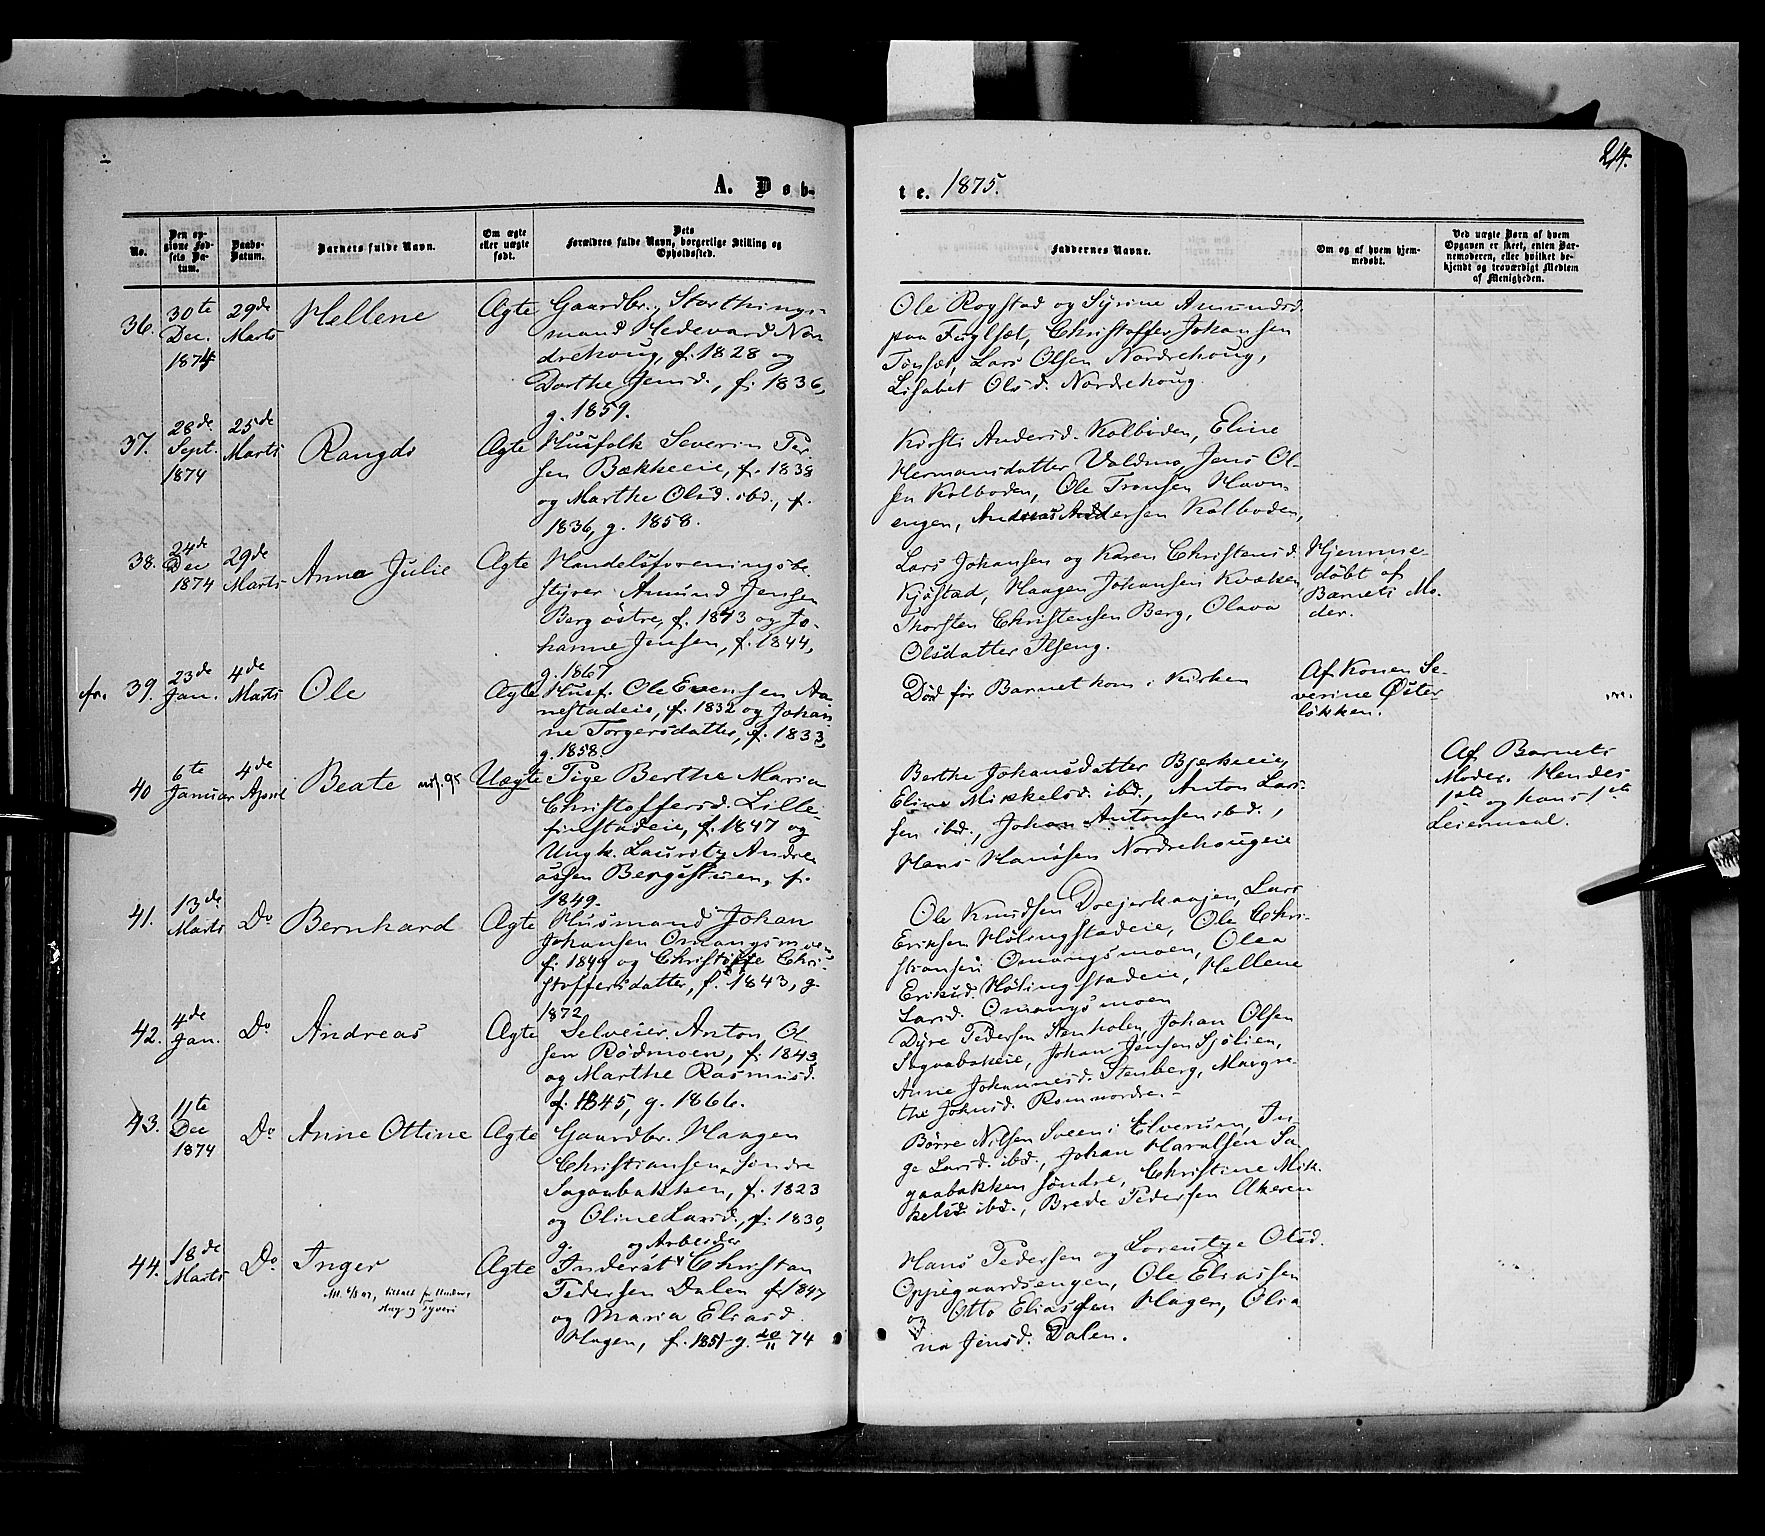 24.
A. Døb-
te. 1875.
No.
Den op-
givne Fød-
sels Da-
tum.
Daabs-
Datum.
Barnets fulde Navn.
Om ægte
eller uægte
født.
Dets
Forældres fulde Navn, borgerlige Stilling og
Opholdssted.
Faddernes Navne.
Om og af hvem hjem-
medøbt.
Ved uægte Børn af hvem
Opgaven er skeet, enten Bar-
nemoderen, eller hvilket be-
kjendt og troværdigt Medlem
af Menigheden.
36.
30te
Dec.
1874
29de
Marts
Hellene
Ægte
Gaardbr., Storthings-
mand Hedevard Nor-
drehoug, f. 1828 og
Dorthe Jensd., f. 1836,
g. 1859.
Ole Rogstad og Syrine Amundsd.
paa Fuglset, Christoffer Johansen
Tønset, Lars Olsen Nordrehoug,
Lisabet Olsd. Nordrehoug.
37.
28de
Sept.
1874
25de
Marts
Rangdi
Ægte
Husfolk Severin Per-
sen Bækkeeie, f. 1838
og Marthe Olsd. ibd., f.
1836, g. 1858.
Kirsti Andersd. Kolboden, Eline
Hermansdatter Valdmo, Jens Ol-
sen Kolboden, Ole Tronsen Havn-
engen, Andreas Andersen Kolboden,
38.
24de
Dec
1874
29de
Marts
Anna Julie
Ægte
Handelsforeningsbe-
styrer Amund Jensen
Berg østre, f. 1843 og Jo-
hanne Jensen, f. 1844,
g. 1867
Lars Johansen og Karen Christensd.
Kjøstad, Haagen Johansen Kvæken
Thorsten Christensen Berg, Olava
Olsdatter Ilseng.
Hjemme-
døbt af
Barnets Mo-
der.
39.
23de
Jan.
4de
Marts
Ole
Ægte
Husf. Ole Evensen Aa-
nestadeie, f. 1832 og Johan-
ne Torgersdatter, f. 1833,
g. 1858.
Død før Barnet kom i Kirken
Af Konen Se-
verine Øster-
løkken.
40
6te
Januar
4de
April
Beate
Uægte
Pige Berthe Maria
Christoffersd. Lille-
finstadeie, f. 1847 og
Ungk. Lauritz Andre-
assen Bergstuen, f.
1849.
Berthe Johansdatter Bjerkeeie,
Eline Mikkelsd. ibd., Anton Lar-
sen ibd., Johan Antonsen ibd.,
Hans Hansen Nordrehougeie
Af Barnets
Moder. Hendes
1ste og hans 1ste
Leiermaal.
41.
13de
Marts
Do
Bernhard
Ægte
Husmand Johan
Johansen Omangsmoen
f. 1849 og Christoffe Chri-
stoffersdatter, f. 1843, g.
1872
Ole Knudsen Drejerhaugen, Lars
Eriksen Hølingstadeie, Ole Chri-
stiansen Omangsmoen, Olea
Eriksd. Hølingstadeie, Hellene
Larsd. Omangsmoen
42.
4de
Jan.
Do
Andreas
Ægte
Selveier Anton Ol-
sen Rødmoen, f. 1843
og Marthe Rasmusd.
f. 1845, g. 1866.
Dyre Pedersen Stenholen, Johan Olsen
Sagaabakeie, Johan Jensen Sjølien,
Anne Johannesd. Stenberg, Margre-
the Johnsd. Romnordre.
43.
11te
Dec
1874
Do
Anne Ottine
Ægte
Gaardbr. Haagen
Christiansen Søndre
Sagaabakken, f. 1823
og Oline Larsd., f. 1830,
g.
Børre Nilsen Sveen i Elverum, In-
ge Larsd. ibd., Johan Haralsen Sa-
gaabakken søndre, Christine Mik-
kelsd. ibd., Brede Pedersen Akeren
44.
18de
Marts
Do
Inger
Ægte
og Arbeider
Inderst Christian
Pedersen Dalen f. 1847
og Maria Eliasd.
Hagen, f. 1851 g. 20/11 74
Hans Pedersen og Lorentze Olsd.
Oppegaardsengen, Ole Eliassen
og Otto Eliassen Hagen, Olia-
na Jensd. Dalen.